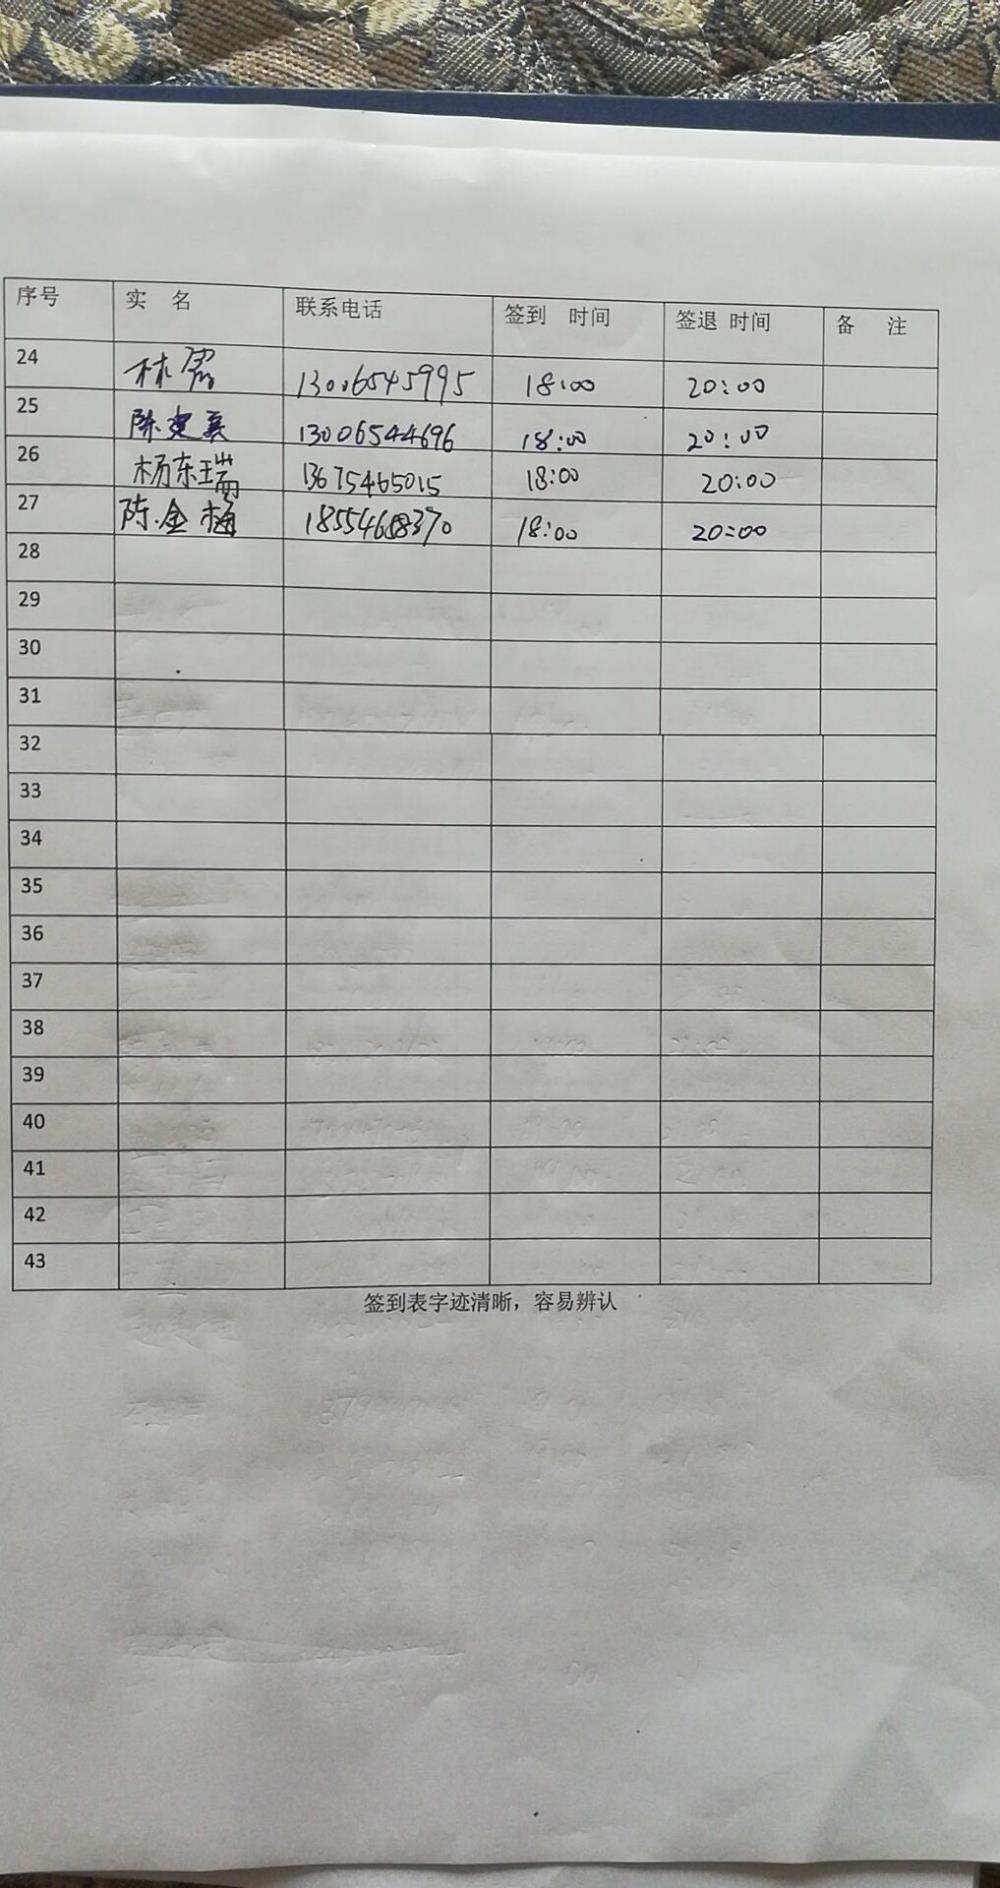 序号 实 名 联系电话 签到 时间 签退 时间 备 注
24 林 13006545995 18:00 20:00
25 陈建英 13006544696 18:00 20:00
26 杨东瑞 13675465015 18:00 20:00
27 陈金梅 18:00 20:00
28
29
30
31
32
33
34
35
36
37
38
39
40
41
42
43
签到表字迹清晰，容易辨认